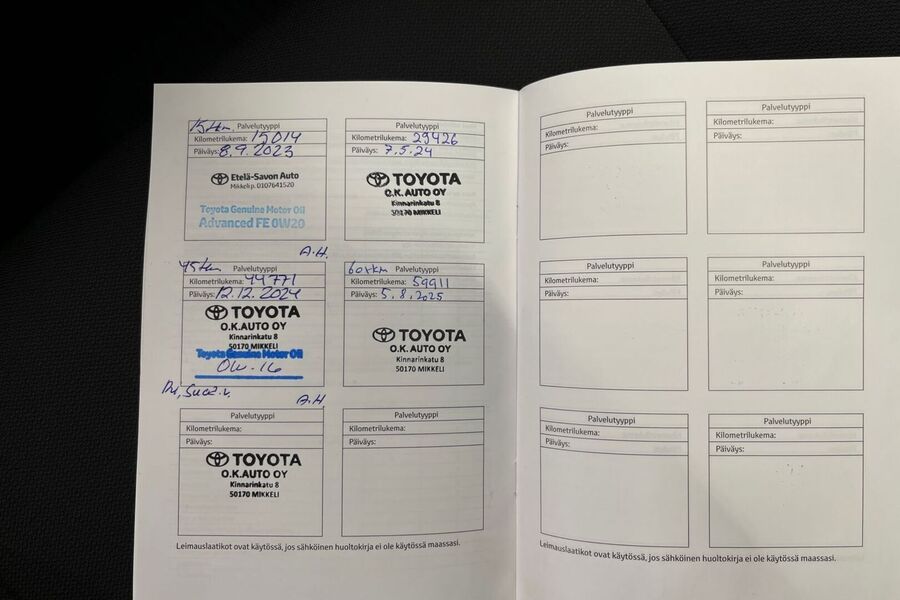 15tkm Palvelutyyppi
Kilometrilukema: 15014
Päiväys: 8.9.2023
Etelä-Savon Auto
Mikkeli p. 0107641520
Toyota Genuine Motor Oil
Advanced FE 0W20
Palvelutyyppi
Kilometrilukema: 29426
Päiväys: 7.5.24
TOYOTA
O.K.AUTO OY
Kinnarinkatu 8
50170 MIKKELI
A.H.
45tkm Palvelutyyppi
Kilometrilukema: 44771
Päiväys: 12.12.2024
TOYOTA
O.K.AUTO OY
Kinnarinkatu 8
50170 MIKKELI
Toyota Genuine Motor Oil
0W-16
60tkm Palvelutyyppi
Kilometrilukema: 59911
Päiväys: 5.8.2025
TOYOTA
O.K.AUTO OY
Kinnarinkatu 8
50170 MIKKELI
A.H
Palvelutyyppi
Kilometrilukema:
Päiväys:
TOYOTA
O.K.AUTO OY
Kinnarinkatu 8
50170 MIKKELI
Palvelutyyppi
Kilometrilukema:
Päiväys:
Leimauslaatikot ovat käytössä, jos sähköinen huoltokirja ei ole käytössä maassasi.
Palvelutyyppi
Kilometrilukema:
Päiväys:
Palvelutyyppi
Kilometrilukema:
Päiväys:
Palvelutyyppi
Kilometrilukema:
Päiväys:
Palvelutyyppi
Kilometrilukema:
Päiväys:
Palvelutyyppi
Kilometrilukema:
Päiväys:
Palvelutyyppi
Kilometrilukema:
Päiväys:
Leimauslaatikot ovat käytössä, jos sähköinen huoltokirja ei ole käytössä maassasi.